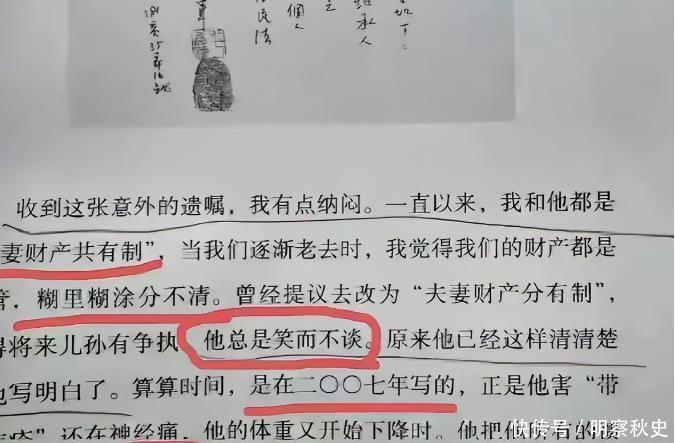 如下：
承人
之
個人
民法
收到这张意外的遗嘱，我有点纳闷。一直以来，我和他都是
妻财产共有制”，当我们逐渐老去时，我觉得我们的财产都是
管，糊里糊涂分不清。曾经提议去改为“夫妻财产分有制”，
得将来儿孙有争执，他总是笑而不谈。原来他已经这样清清楚
也写明白了。算算时间，是在二〇〇七年写的，正是他害“带
”还在神经痛，他的体重又开始下降时。他把他
快传号／明察秋史